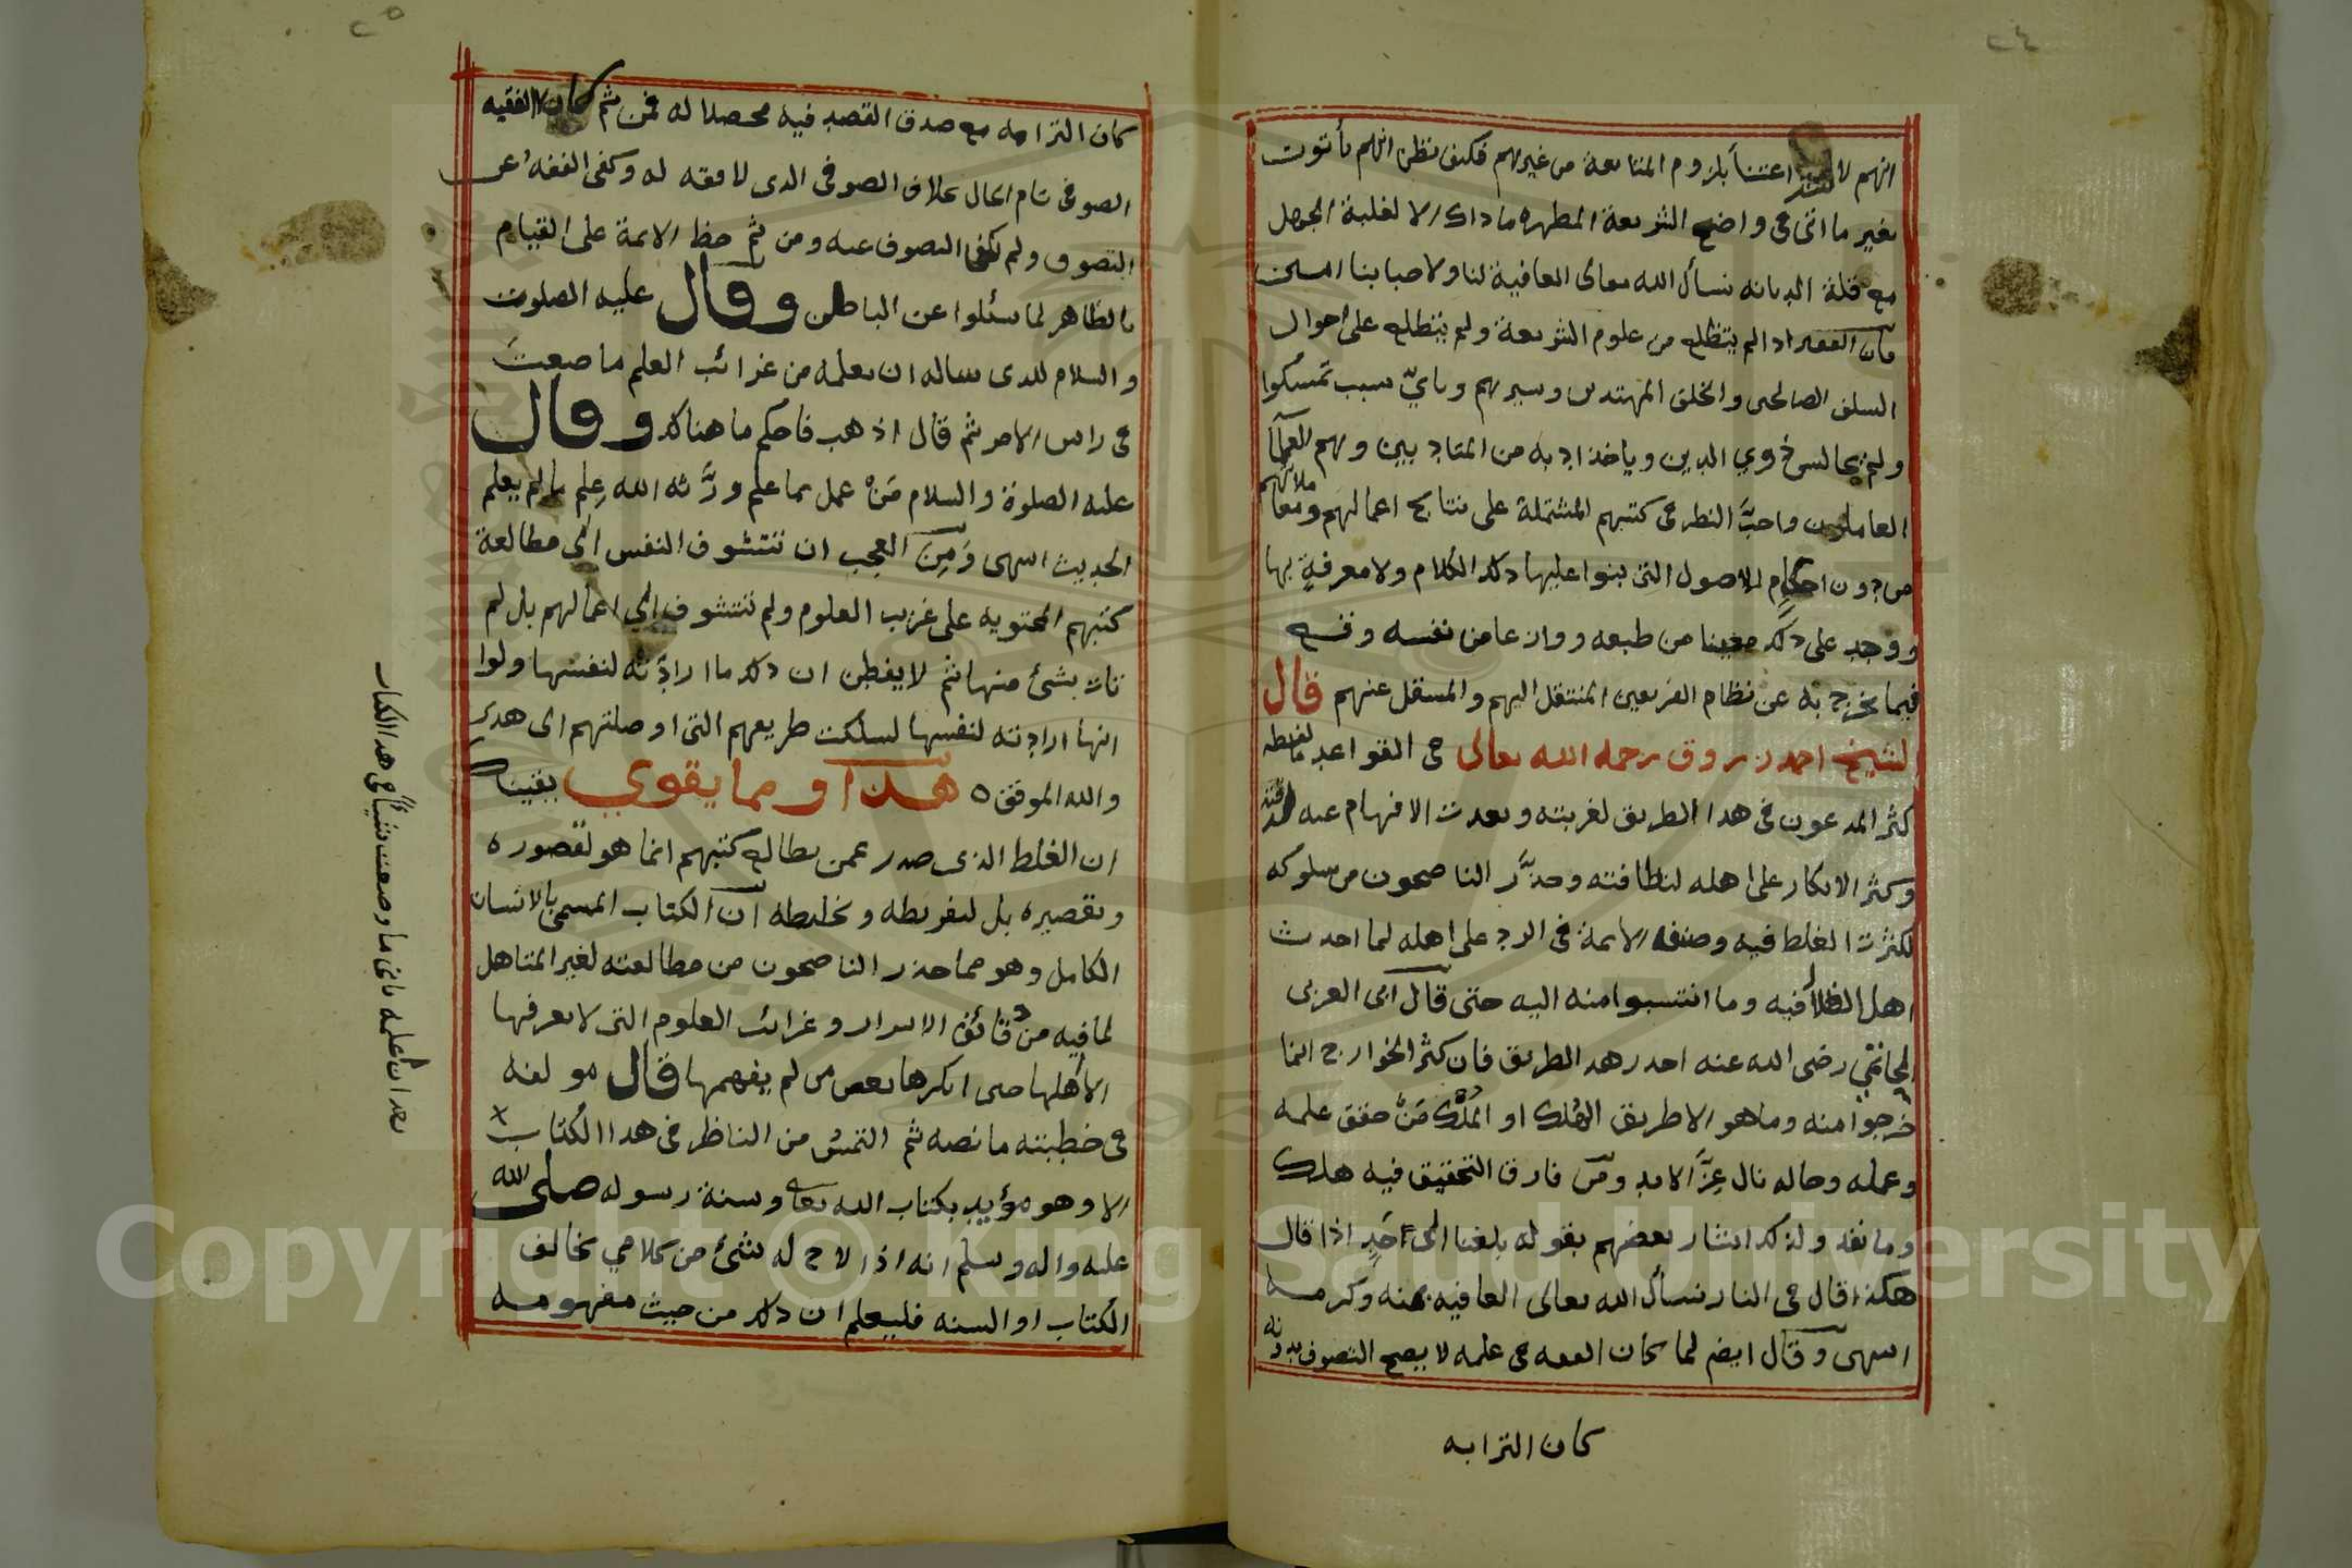 ٢٤
انهم لا اشد اعتناً بلزوم المتابعة من غيرهم فكيف نظن انهم يأتون
بغير ما اتى في واضح الشريعة المطهره ما ذاك الا لغلبة الجهل
مع قلة الديانه نسأل الله تعالى العافية لنا ولاحبابنا امين
فان الفقير اذا لم يتظلع من علوم الشريعة ولم يتطلع على احوال
السلف الصالحين والخلف المهتدين وسيرهم وبايّ سبب تمسكوا
ولم يجالس ذوي الدين وياخذ ادبه من المتادبين وهم العلمآ
العاملون واحبَّ النظر في كتبهم المشتملة على نتايج اعمالهم ومعاملاتهم
من دون احكام الاصول التي بنوا عليها ذلك الكلام ولا معرفةٍ بها
ووجد على ذلك معينا من طبعه ووازعا من نفسه وقع
فيما يخرج به عن نظام الفريقين المنتقل اليهم والمنتقل عنهم قال
الشيخ احمد زروق رحمه الله تعالى في القواعد ما لفظه
كثر المدعون في هذا الطريق لغربته وبعدت الافهام عنه لدقته
وكثر الانكار على اهله لنظافته وحذَّر الناصحون من سلوكه
لكثرت الغلط فيه وصنف الايمة في الرد على اهله لما احدث
اهل الظلال فيه وما انتسبوا منه اليه حتى قال ابن العربي
الحاتمي رضي الله عنه احذر هذا الطريق فان كثر الخوارج انما
خرجوا منه وما هو الا طريق الهُلك او المُلك مَنْ حقق علمه
وعمله وحاله نال عِزَّ الابد ومن فارق التحقيق فيه هلك
وما نفد ولذلك اشار بعضهم بقوله بلغنا الى اَحَدٍ اذا قال
هكذا قال في النار نسأل الله تعالى العافيه بمنه وكرمه
انتهى وقال ايضم لما كان الفقه في علمه لا يصح التصوف بدونه
كان التزابه
٢٥
كان التزامه مع صدق القصد فيه محصلا له فمن ثم كان الفقيه
الصوفي تام الحال بخلاف الصوفي الذي لا فقه له وكفى الفقهُ عن
التصوف ولم يكفى التصوف عنه ومن ثم حظ الايمة على القيام
بالظاهر لما سئلوا عن الباطن وقال عليه الصلوت
والسلام للذي ساله ان يعلمه من غرائب العلم ما صنعتَ
في راس الامر ثم قال اذهب فاحكم ما هنالك وقال
عليه الصلوة والسلام مَنْ عمل بما علم ورَّثه الله عِلم ما لم يعلم
الحديث انتهى وَمِنَ العجب ان تتشوف النفس الى مطالعة
كتبهم المحتويه على غريب العلوم ولم تتشوف الى اعمالهم بل لم
تات بشئ منها ثم لا يفطن ان ذلك ما ارادته لنفسها ولوا
انها ارادته لنفسها لسلكت طريقهم التي اوصلتهم الى هذي
والله الموفق ٥ هذا ومما يقوي يقينك
ان الغلط الذي صدر عمن يطالع كتبهم انما هو لقصوره
وتقصيره بل لتفريطه وتخليطه ان الكتاب المسمى بالانسان
الكامل وهو مما حذر الناصحون من مطالعته لغير المتاهل
لما فيه من دقائق الاسرار وغرائب العلوم التي لا يعرفها
الا اهلها حتى انكرها بعض من لم يفهمها قال مولفه
في خطبته ما نصه ثم التمسُ من الناظر في هذا الكتاب x
الا وهو مؤيد بكتاب الله تعالى وسنة رسوله صلى الله
عليه واله وسلم انه اذا لاح له شئ من كلامي يخالف
الكتاب او السنه فليعلم ان ذلك من حيث مفهومه
بعد ان اعلمه باني ما وضعت شيأً في هذا الكتاب
Copyright © King Saud University